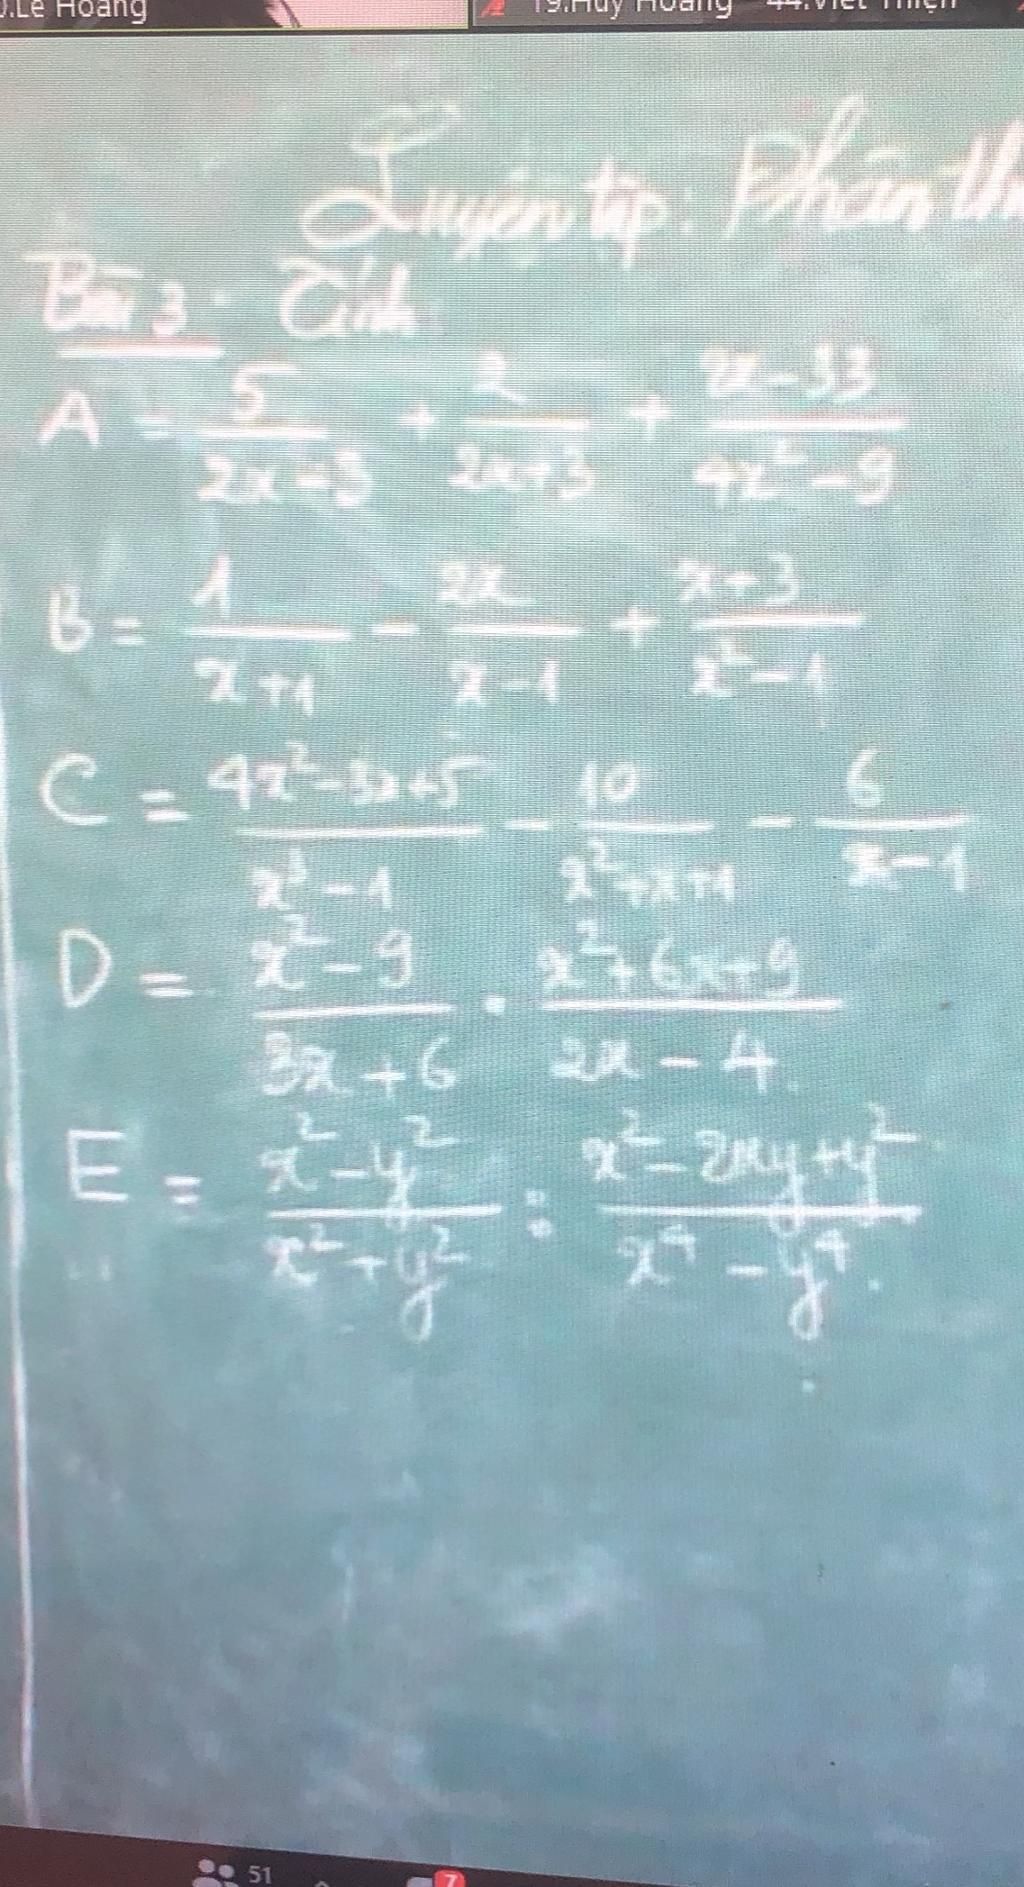 .Lê Hoàng 19.Huy Hoàng 44.Viết Thiện
Luyện tập: Phân th
Bài 3: Tính
A = 5/(2x-3) + 2/(2x+3) + (2x-33)/(4x²-9)
B = 1/(x+1) - 2x/(x-1) + (x+3)/(x²-1)
C = (4x²-3x+5)/(x³-1) - 10/(x²+x+1) - 6/(x-1)
D = (x²-9)/(3x+6) . (x²+6x+9)/(2x-4)
E = (x²-y²)/(x²+y²) : (x²-2xy+y²)/(x⁴-y⁴).
51 7